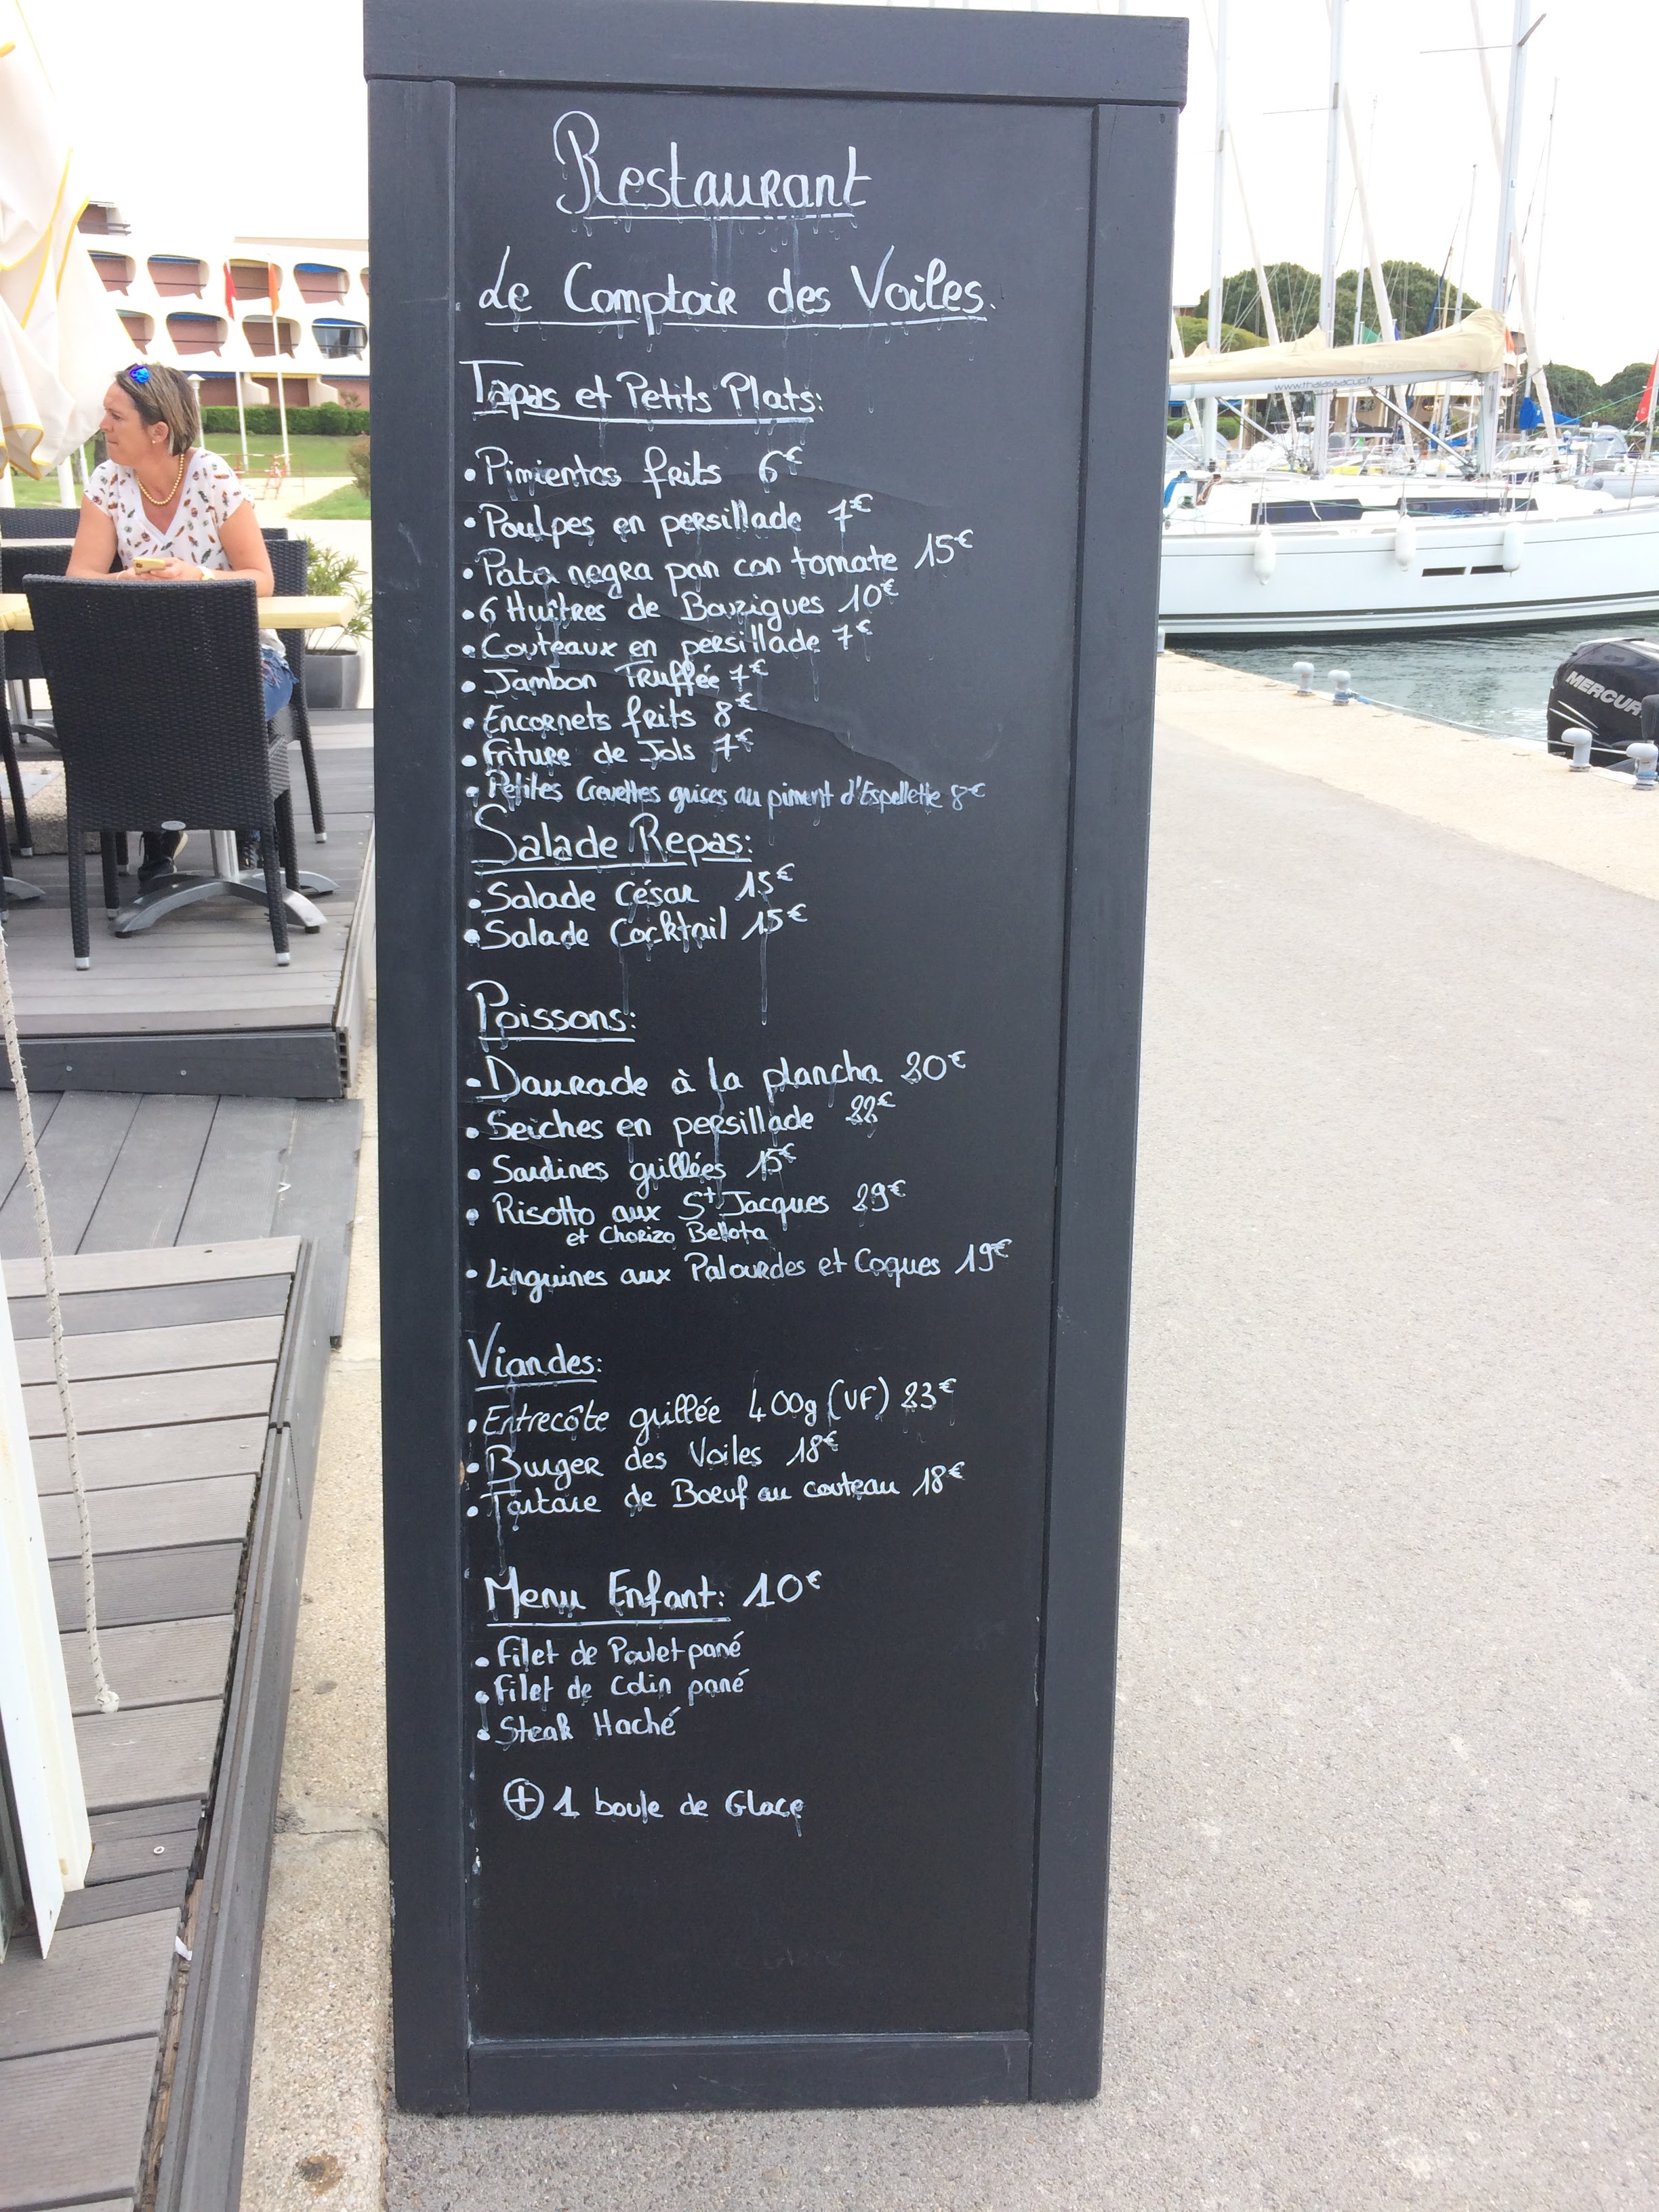 Restaurant
Le Comptoir des Voiles.
Tapas et Petits Plats:
• Pimientos frits 6€
• Poulpes en persillade 7€
• Pata negra pan con tomate 15€
• 6 Huîtres de Bouzigues 10€
• Couteaux en persillade 7€
• Jambon Truffée 7€
• Encornets frits 8€
• Friture de Jols 7€
• Petites Crevettes grises au piment d'Espellette 8€
Salade Repas:
• Salade César 15€
• Salade Cocktail 15€
Poissons:
• Daurade à la plancha 20€
• Seiches en persillade 22€
• Sardines grillées 15€
• Risotto aux St Jacques 29€
et Chorizo Bellota
• Linguines aux Palourdes et Coques 19€
Viandes:
• Entrecôte grillée 400g (VF) 23€
• Burger des Voiles 18€
• Tartare de Boeuf au couteau 18€
Menu Enfant: 10€
• Filet de Poulet pané
• Filet de Colin pané
• Steak Haché
⊕ 1 boule de Glace
www.thalassacup.fr
MERCUR